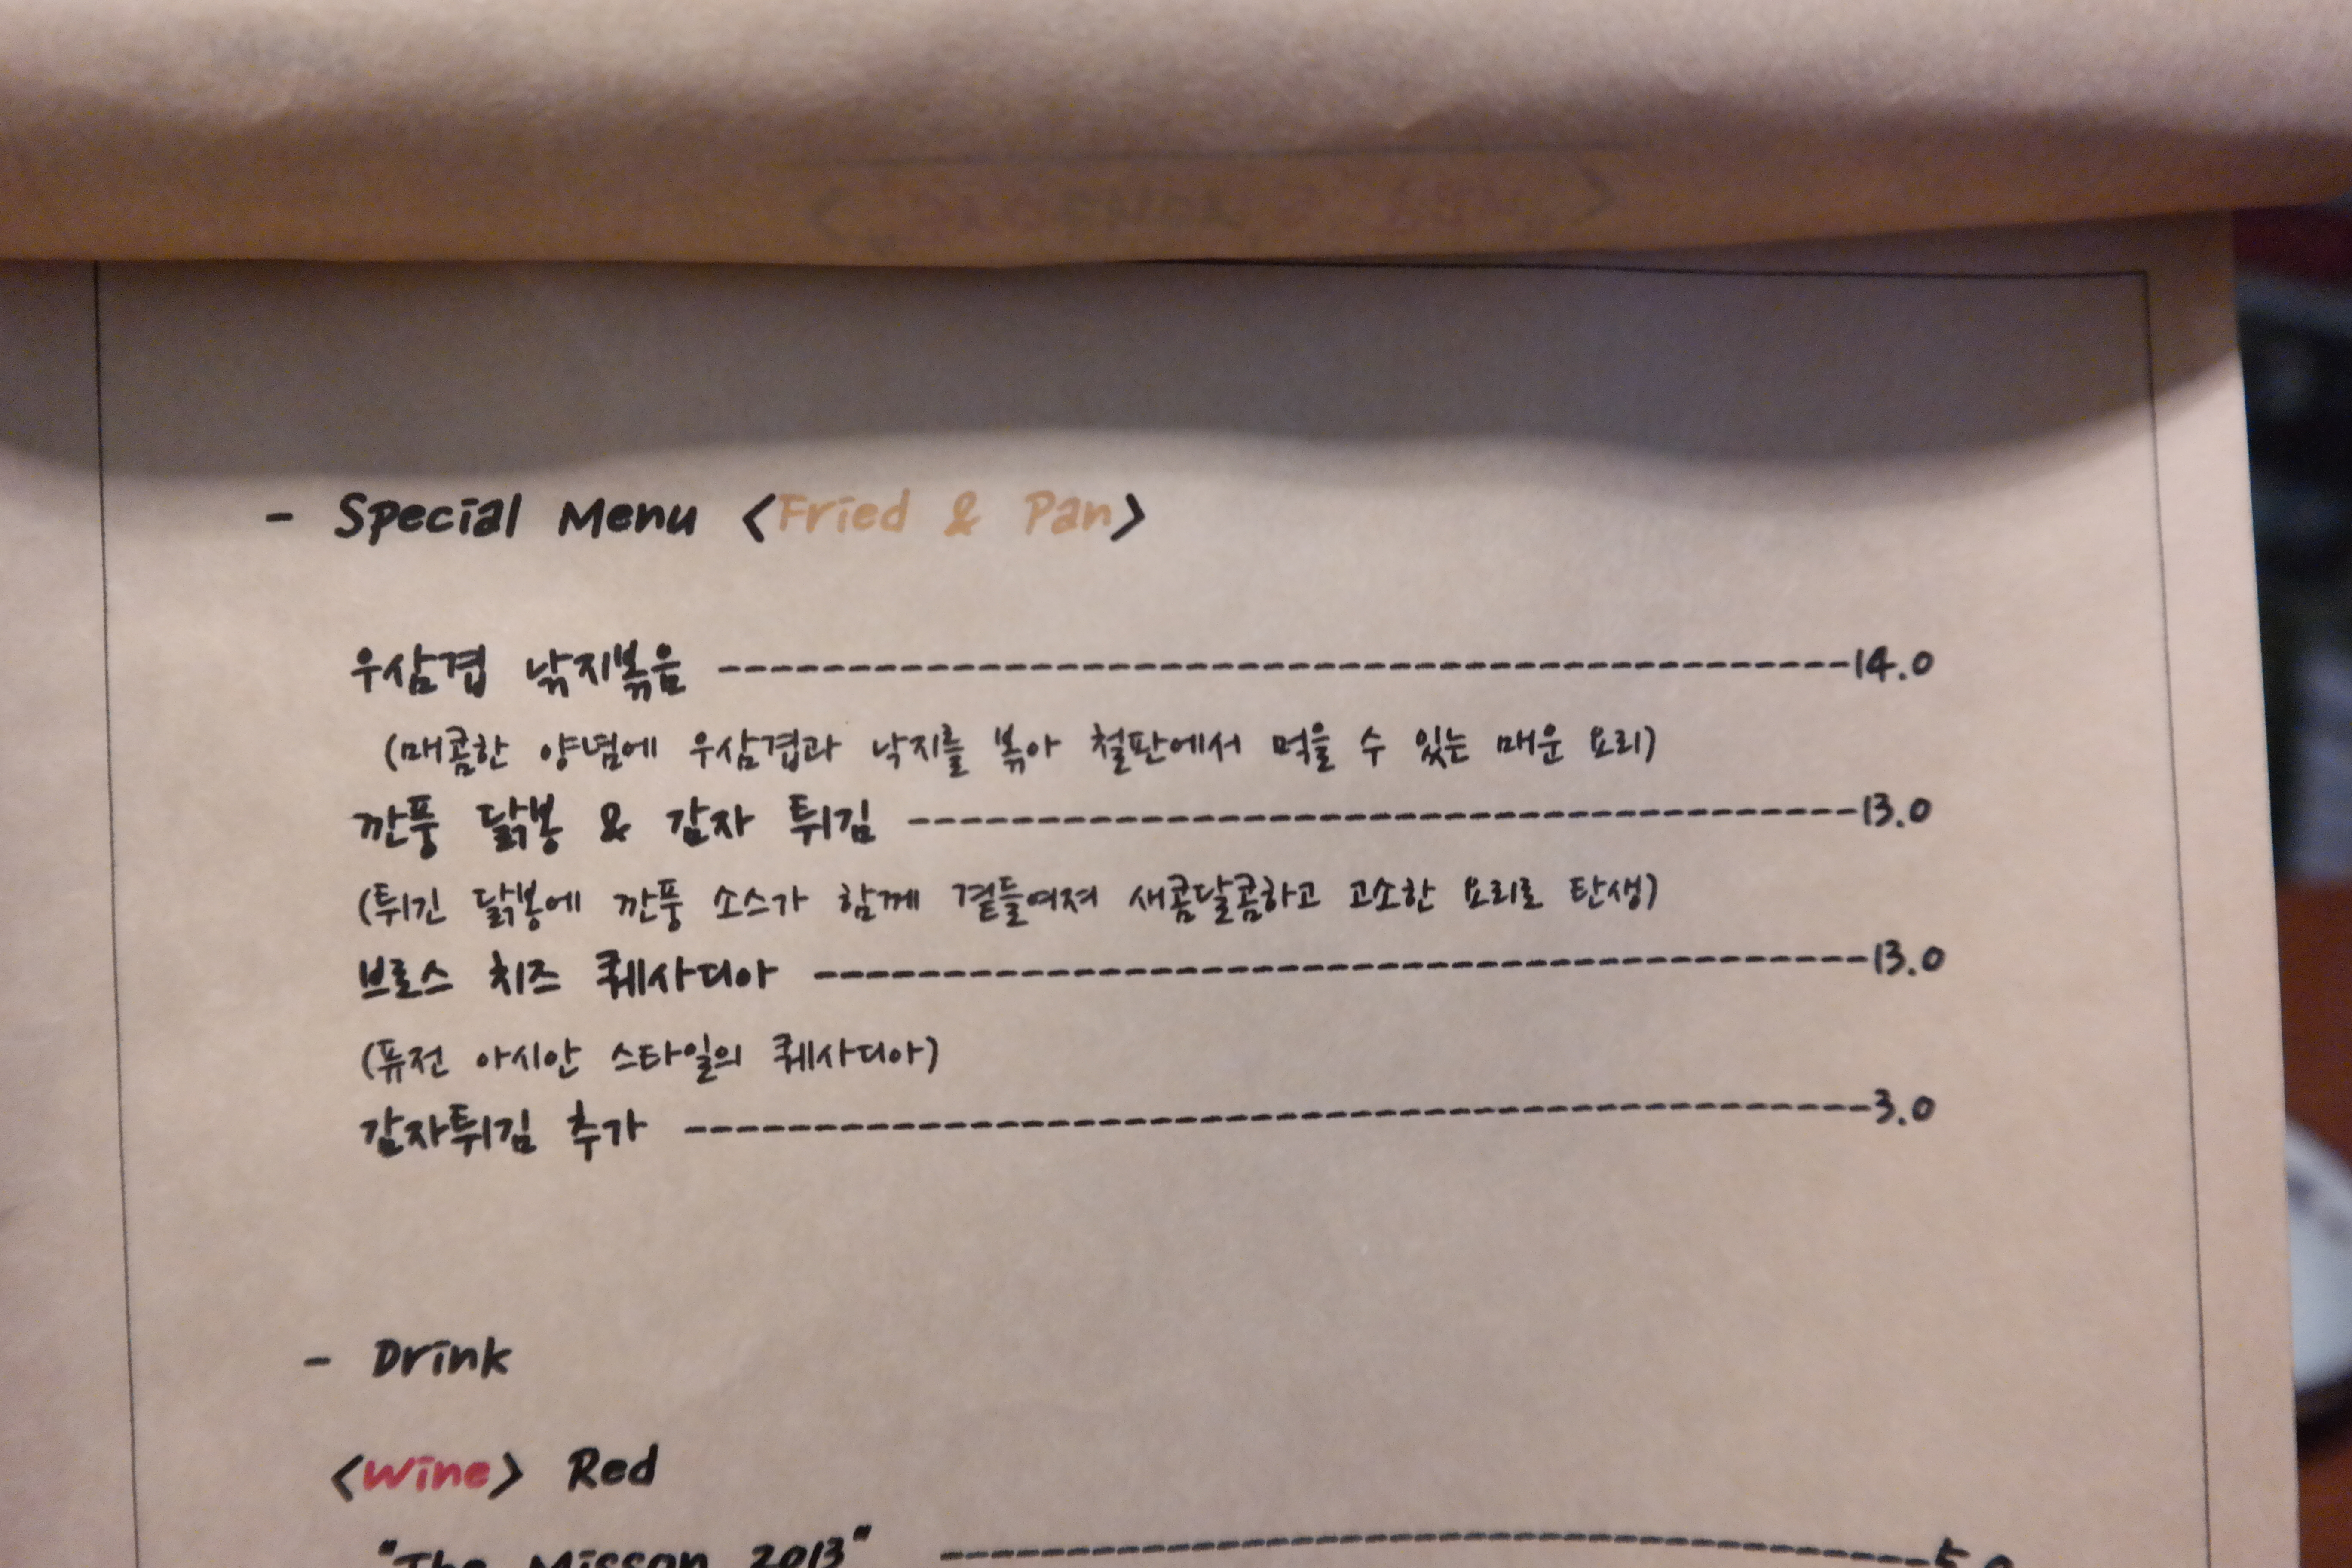 - Special Menu <Fried & Pan>
우삼겹 낚지볶음 --------------------------------------------14.0
(매콤한 양념에 우삼겹과 낙지를 볶아 철판에서 먹을 수 있는 매운 요리)
깐풍 닭봉 & 감자 튀김 -------------------------------------13.0
(튀긴 닭봉에 깐풍 소스가 함께 곁들여져 새콤달콤하고 고소한 요리로 탄생)
브로스 치즈 퀘사디아 -----------------------------------------13.0
(퓨전 아시안 스타일의 퀘사디아)
감자튀김 추가 ----------------------------------------------3.0
- Drink
<Wine> Red
"The Misson 2013" --------------------------------------5.0